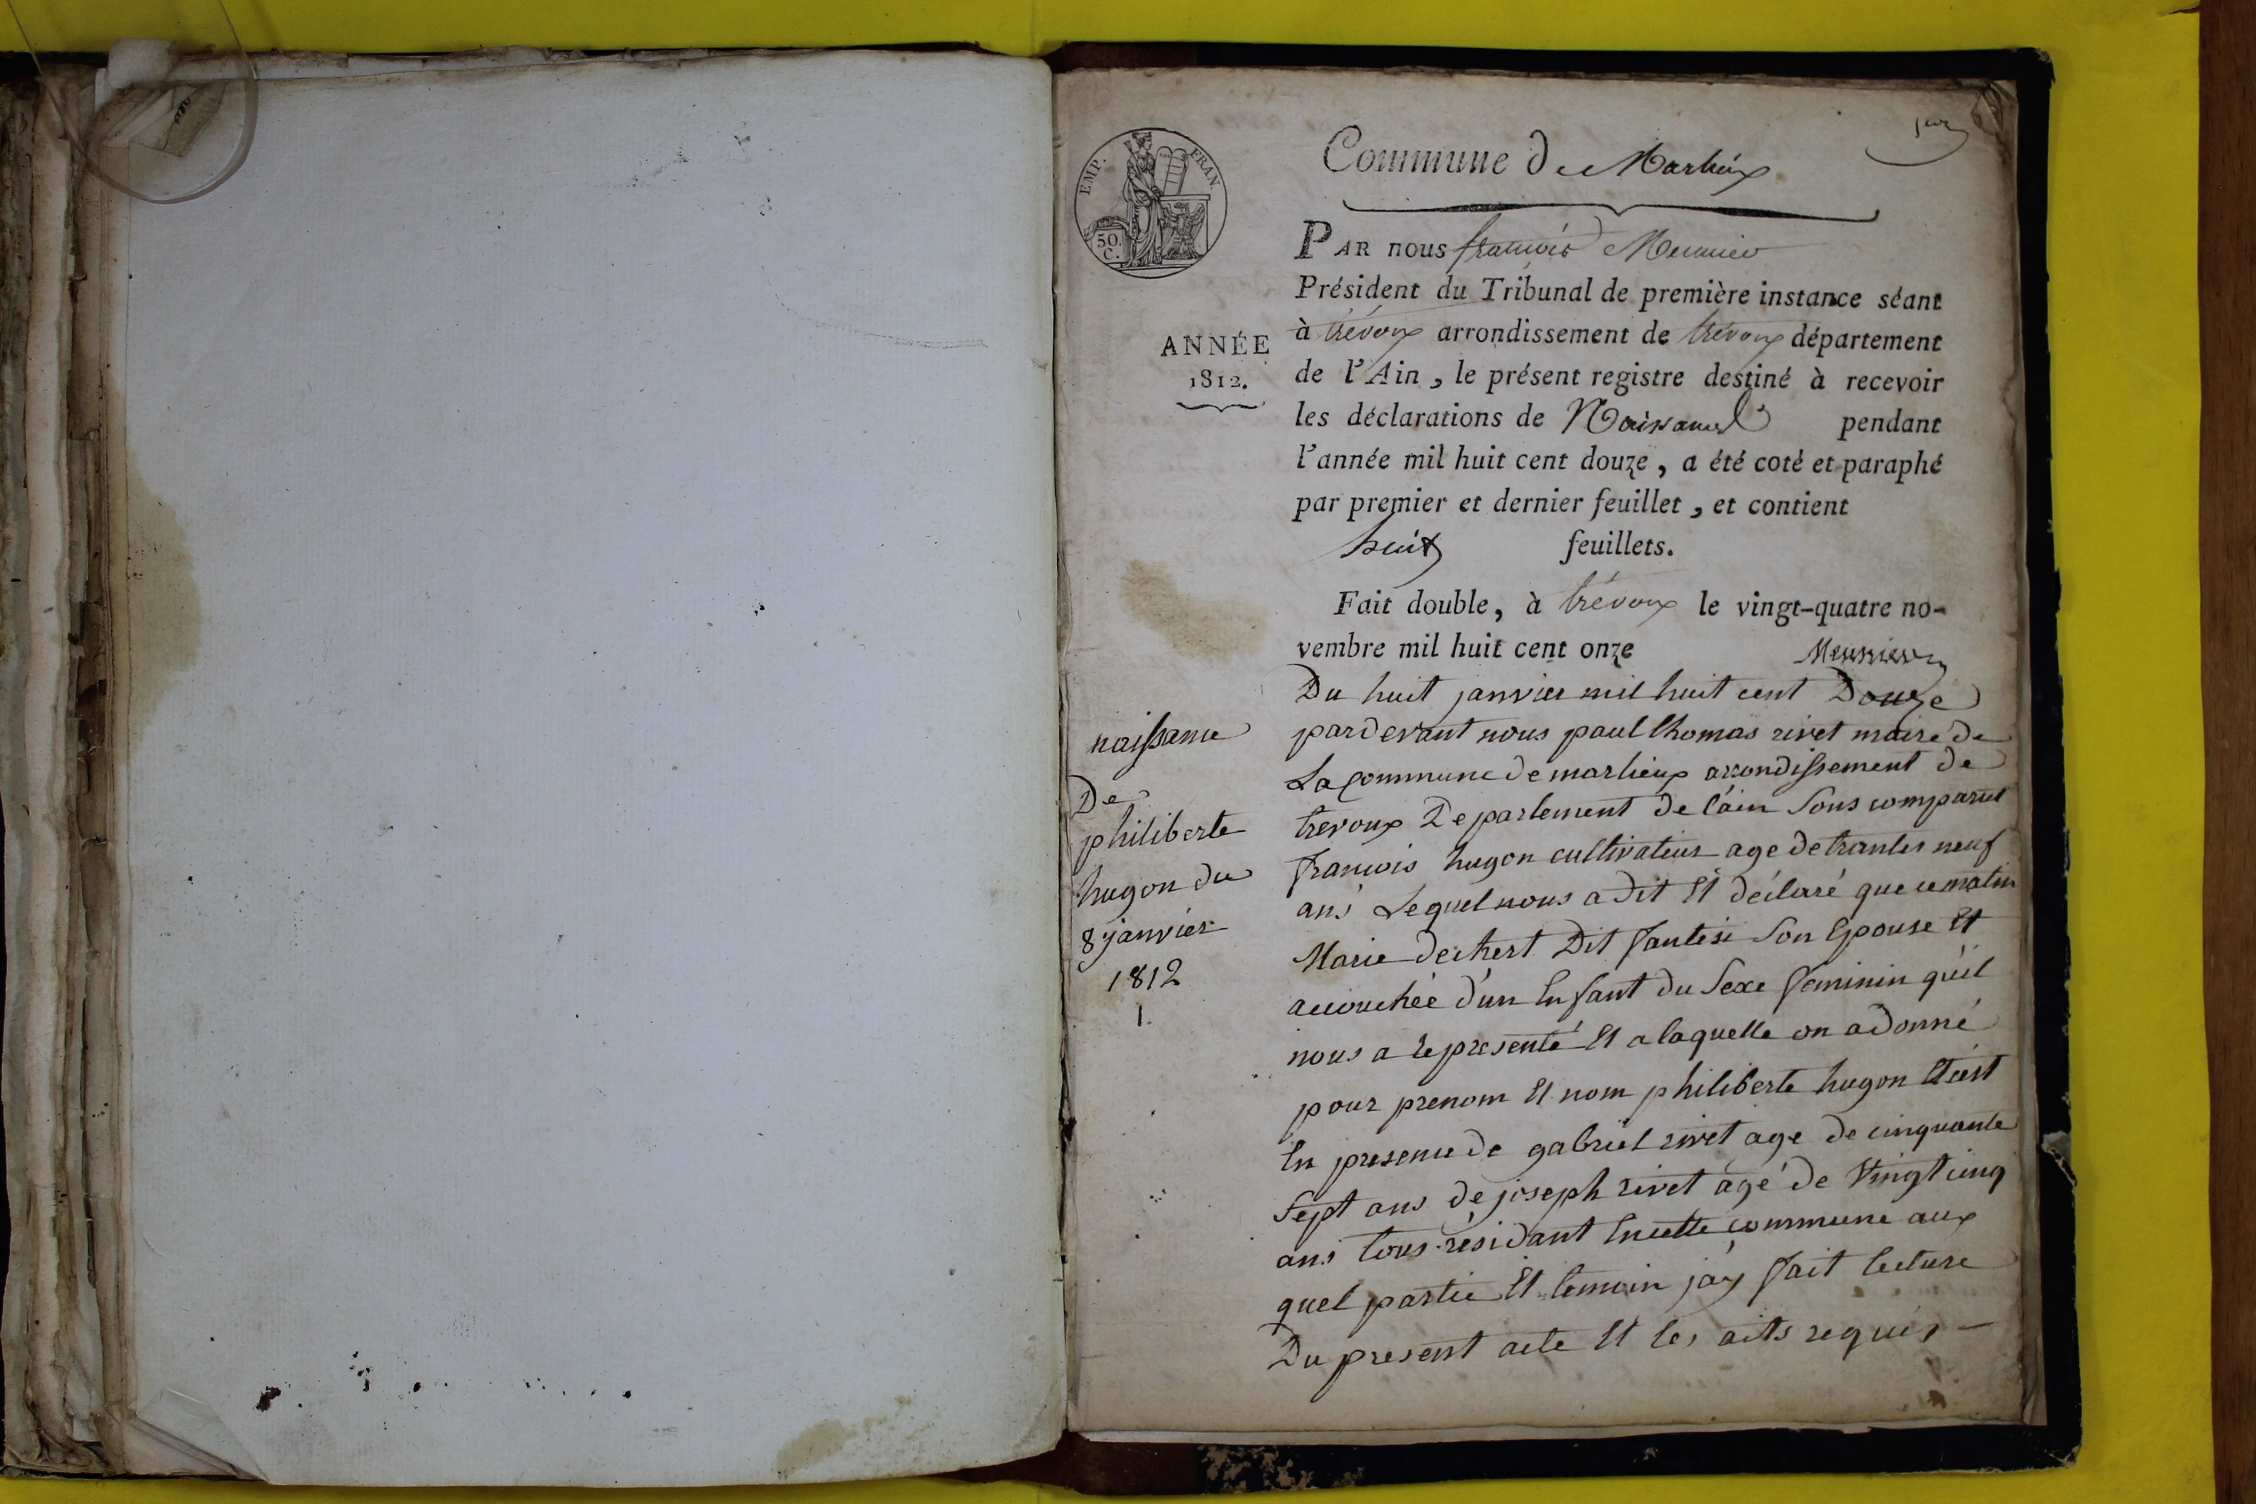 EMP. FRAN
50.
C.
Commune de Marlieux
PAR nous françois Meunier
Président du Tribunal de première instance séant
à trévoux arrondissement de trévoux département
de l'Ain, le présent registre destiné à recevoir
les déclarations de Naissances pendant
l'année mil huit cent douze, a été coté et paraphé
par premier et dernier feuillet, et contient
huit feuillets.
Fait double, à trévoux le vingt-quatre no-
vembre mil huit cent onze Meunier
ANNÉE
1812.
naissance
De
philiberte
hugon du
8 janvier
1812
1.
Du huit janvier mil huit cent Douze
pardevant nous paul thomas rivet maire de
La commune de marlieux arrondissement de
trevoux Departement de l'ain Sons comparut
francois hugon cultivateur age de trantes neuf
ans Lequel nous a dit Et déclaré que ce matin
Marie dechert Dit fantesi Son Epouse Et
accouchée d'un Enfant du Sexe feminin qu'il
nous a représenté Et a laquelle on a donné
pour prenom Et nom philiberte hugon Et cest
En presence de gabriel rivet age de cinquante
Sept ans de joseph rivet agé de Vingt cinq
ans tous résidant En cette commune aux
quel partie Et temoin j'ay fait lecture
Du present acte Et les aits requis